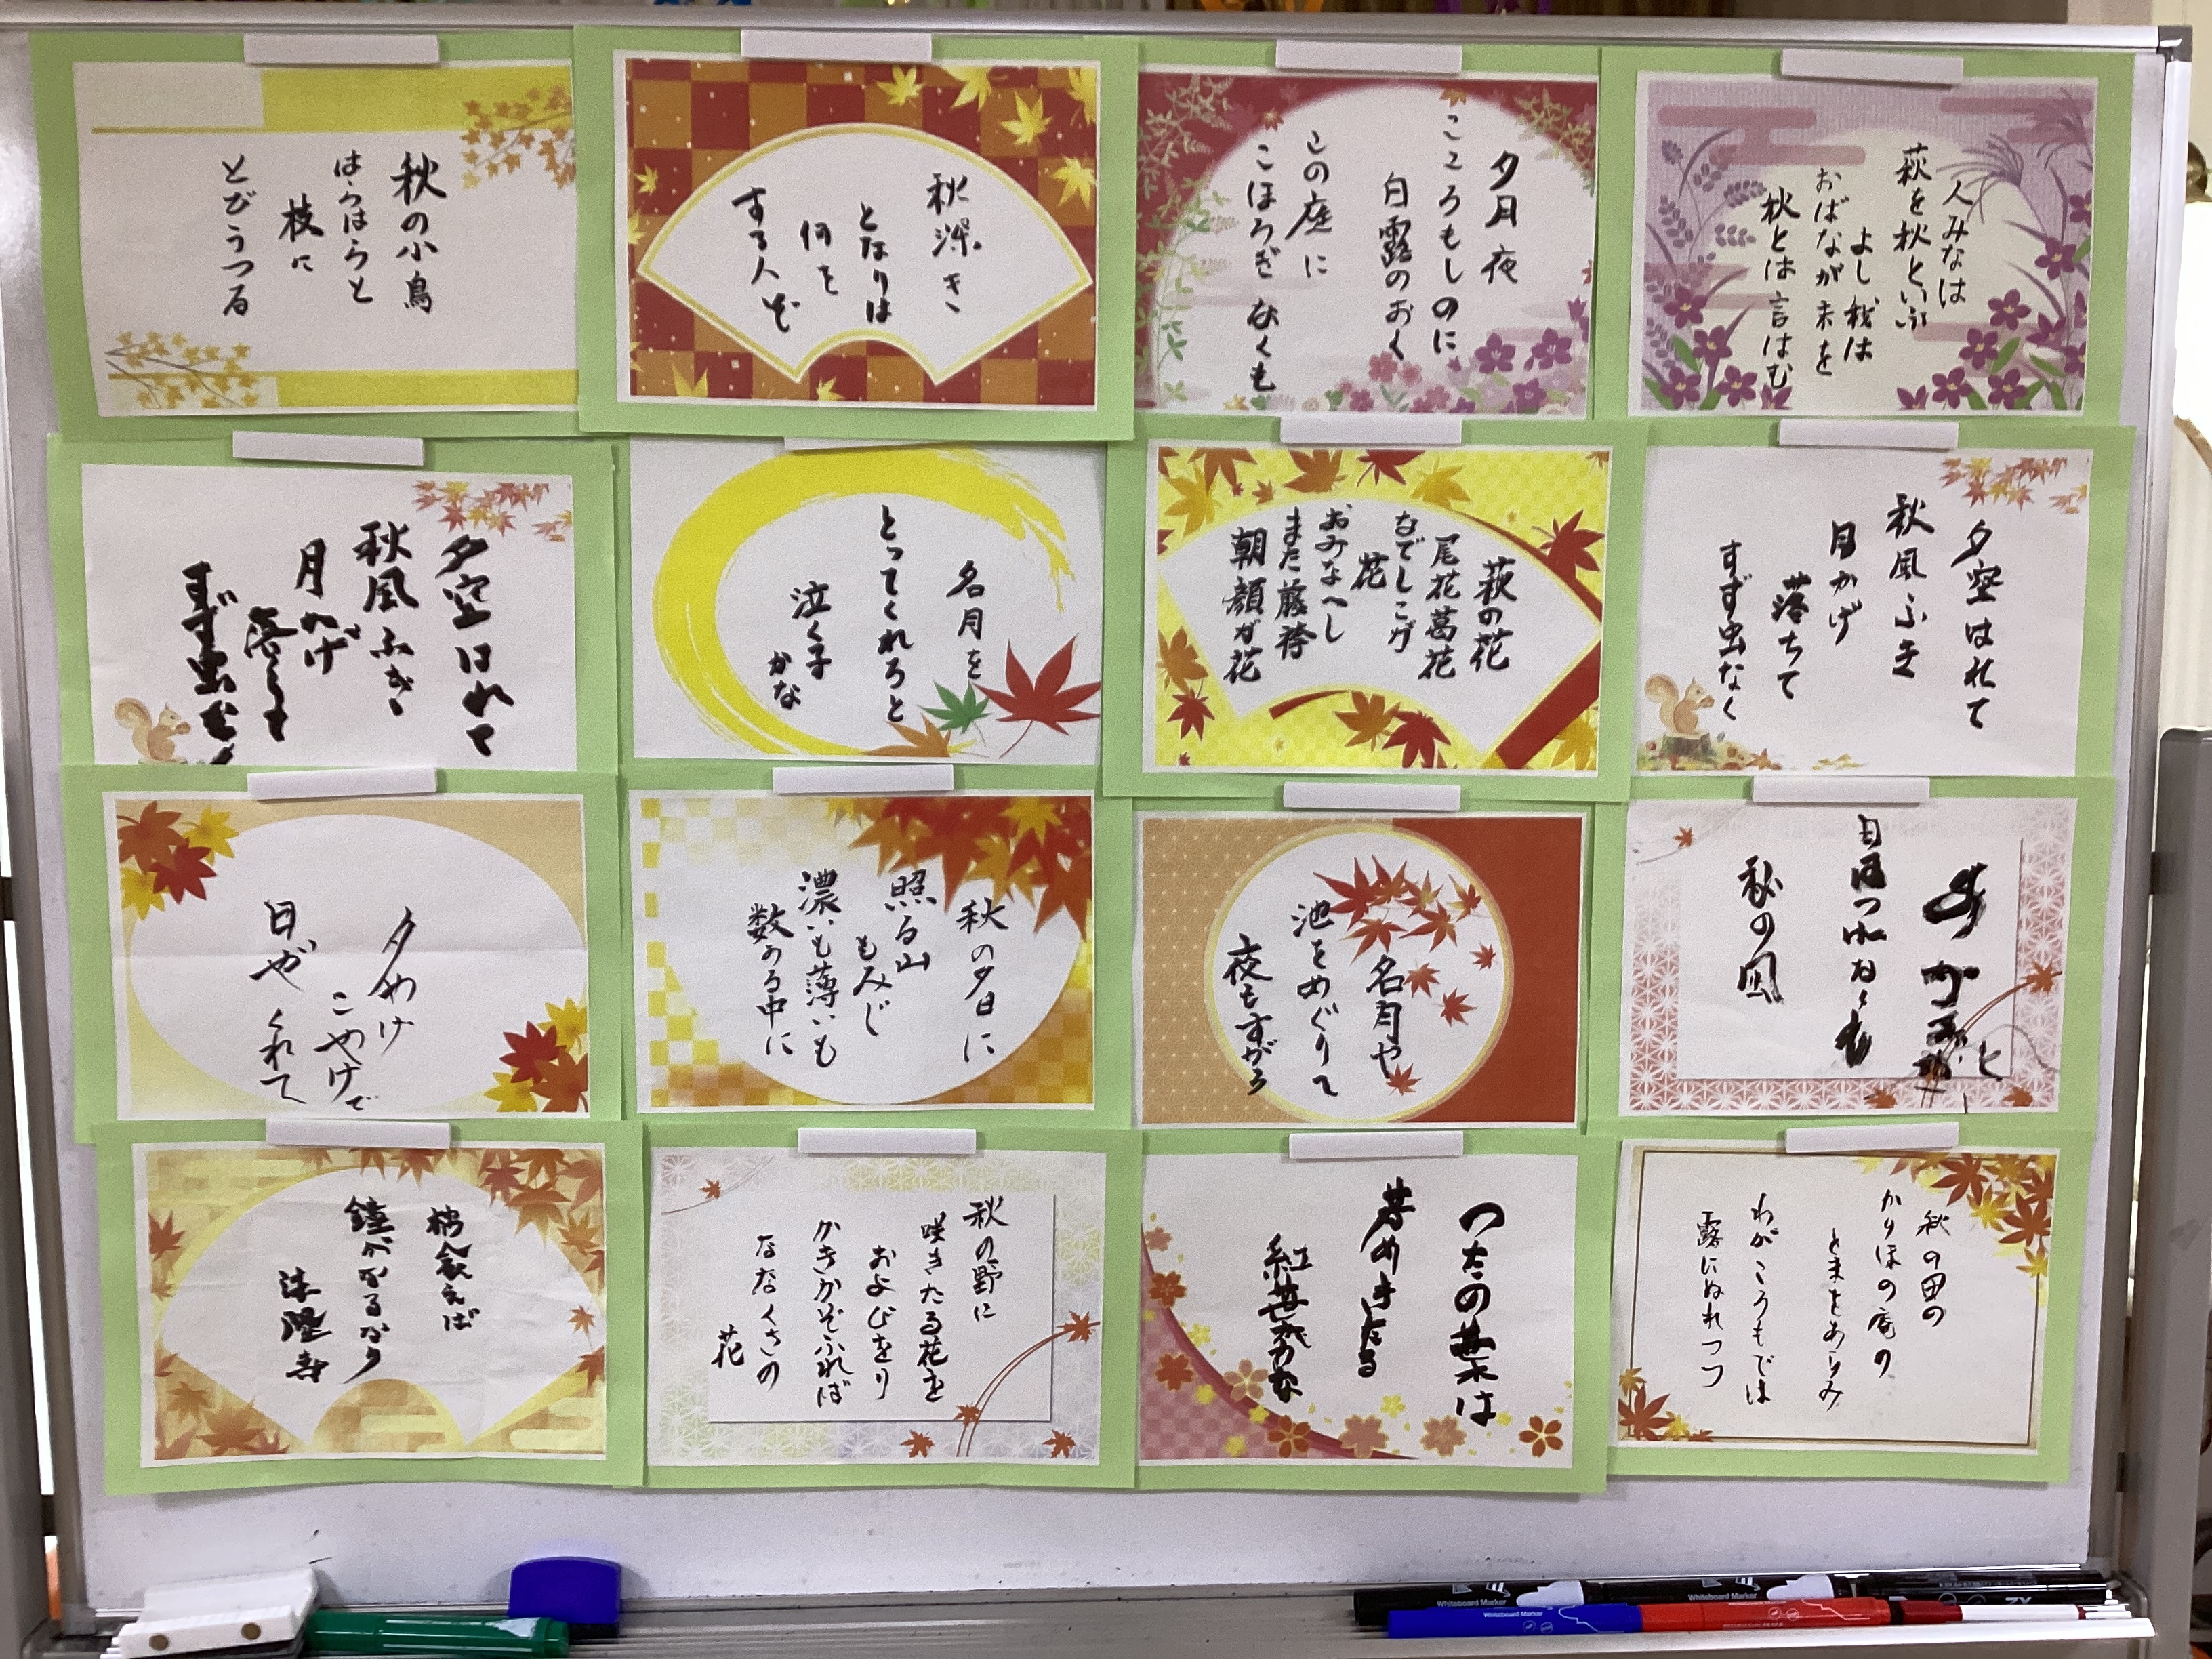 人みなは
萩を秋といふ
よし我は
おばなが末を
秋とは言はむ
夕月夜
こころもしのに
白露のおく
この庭に
こほろぎなくも
秋深き
となりは
何を
する人ぞ
秋の小鳥
はらはらと
枝に
とびうつる
夕空はれて
秋風ふき
月かげ
落ちて
すず虫なく
萩の花
尾花葛花
なでしこが
花
おみなへし
また藤袴
朝顔が花
名月を
とってくれろと
泣く子
かな
夕空はれて
秋風ふき
月かげ
落ちて
すず虫なく
あかあかと
日はつれなくも
秋の風
名月や
池をめぐりて
夜もすがら
秋の夕日に
照る山
もみじ
濃いも薄いも
数ある中に
夕やけ
こやけで
日がくれて
秋の田の
かりほの庵の
とまをあらみ
わがころもでは
露にぬれつつ
つたの葉は
昔めきたる
紅葉かな
秋の野に
咲きたる花を
およびをり
かきかぞふれば
ななくさの
花
柿食えば
鐘がなるなり
法隆寺
Whiteboard Marker
Whiteboard Marker
Whiteboard Marker